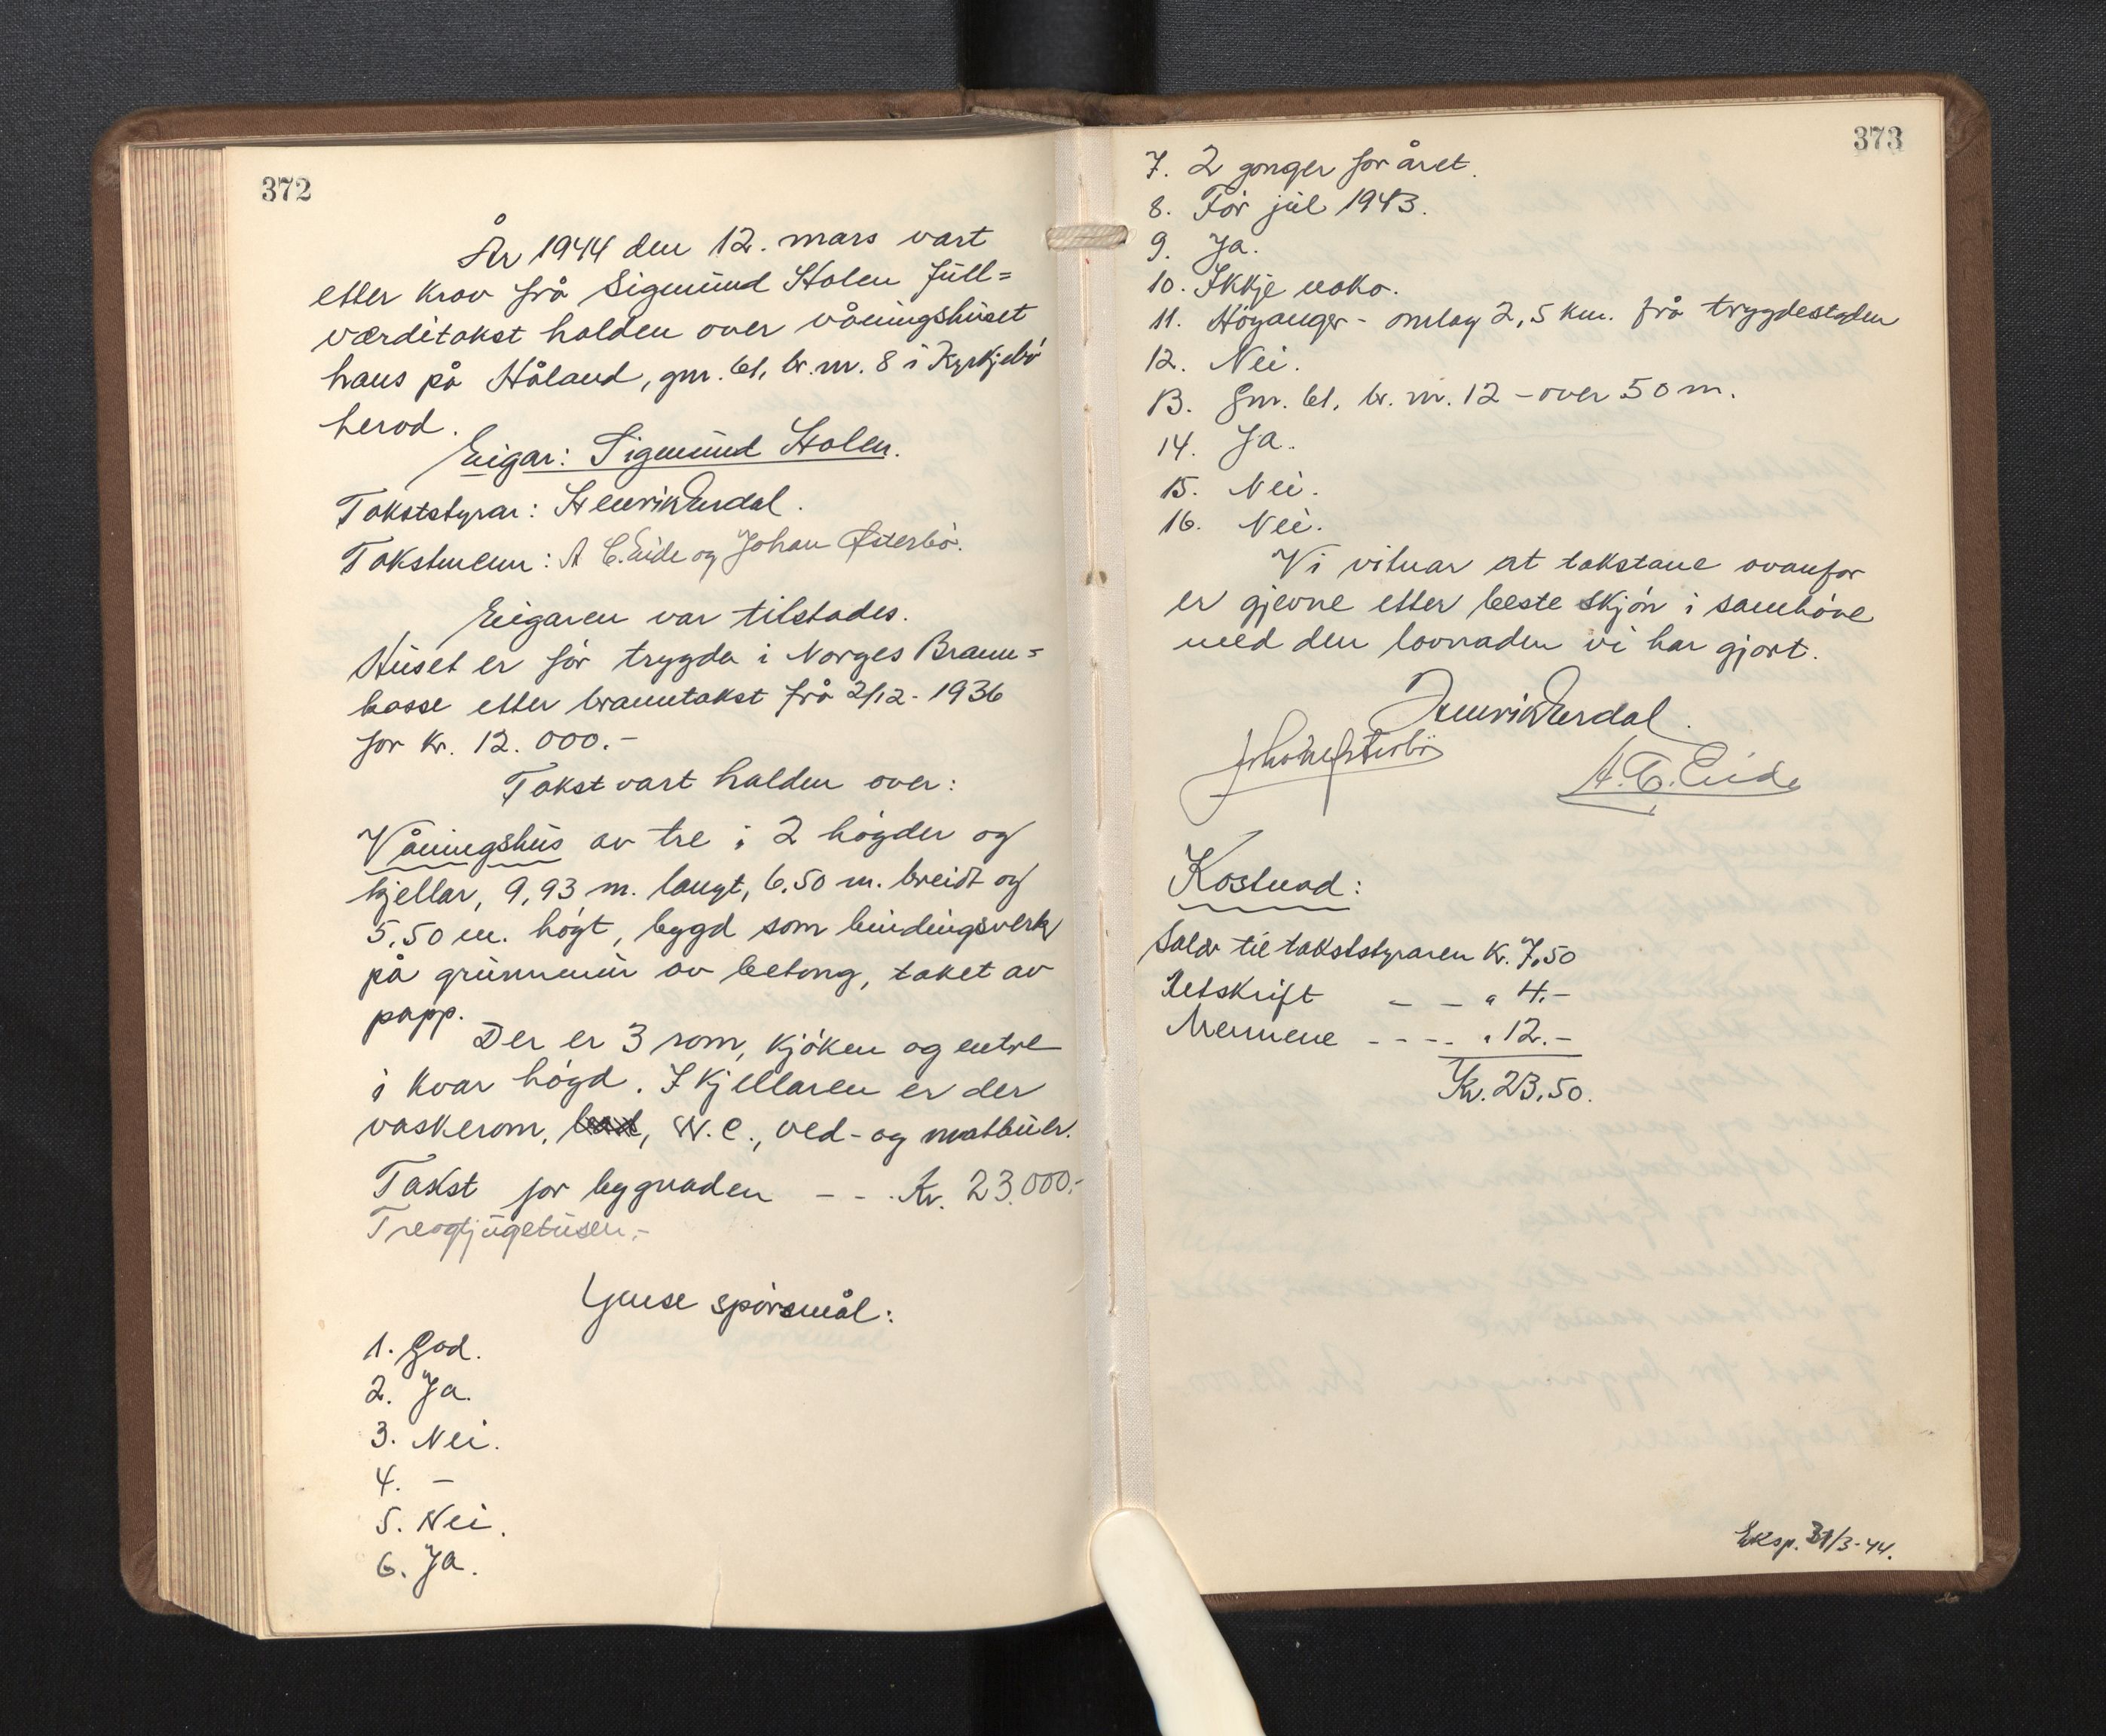 372
År 1944 den 12. mars vart
etter krav frå Sigmund Holen full=
værditakst halden over våningshuset
hans på Håland, gnr. 61, br. nr. 8 i Kyrkjebø
herad.
Eigar: Sigmund Holen.
Takststyrar: Henrik Erdal.
Takstmenn: A C. Eide og Johan Østerbø.
Eigaren var tilstades.
Huset er før trygda i Norges Brann=
kasse etter branntakst frå 2/12- 1936
for kr. 12.000.-
Takst vart halden over:
Våningshus av tre i 2 høgder og
kjellar, 9,93 m. langt, 6,50 m. breidt og
5,50 m. høgt, bygd som bindingsverk
på grunnmur av betong, taket av
papp.
Der er 3 rom, kjøken og entre
i kvar høgd. I kjellaren er der
vaskerom, bad, W.C., ved- og matbuer.
Takst for bygnaden - - . Kr. 23.000.-
Treogtjugetusen.-
Ymse spørsmål:
1. God.
2. Ja.
3. Nei.
4. -
5. Nei.
6. Ja.
373
7. 2 gonger for året.
8. Før jul 1943.
9. Ja.
10. Ikkje noko.
11. Høyanger - omlag 2,5 km. frå trygdestaden
12. Nei.
13. Gnr. 61, br. nr. 12 - over 50 m.
14. Ja.
15. Nei.
16. Nei.
Vi vitnar at takstane ovanfor
er gjevne etter beste skjøn i samhøve
med den lovnaden vi har gjort.
Henrik Erdal.
Johan Østerbø
A. C. Eide
Kostnad:
Salær til takststyraren kr. 7,50
Utskrift - - " 4.-
Mennene - - - - " 12.-
Kr. 23,50.
Eksp. 31/3-44.